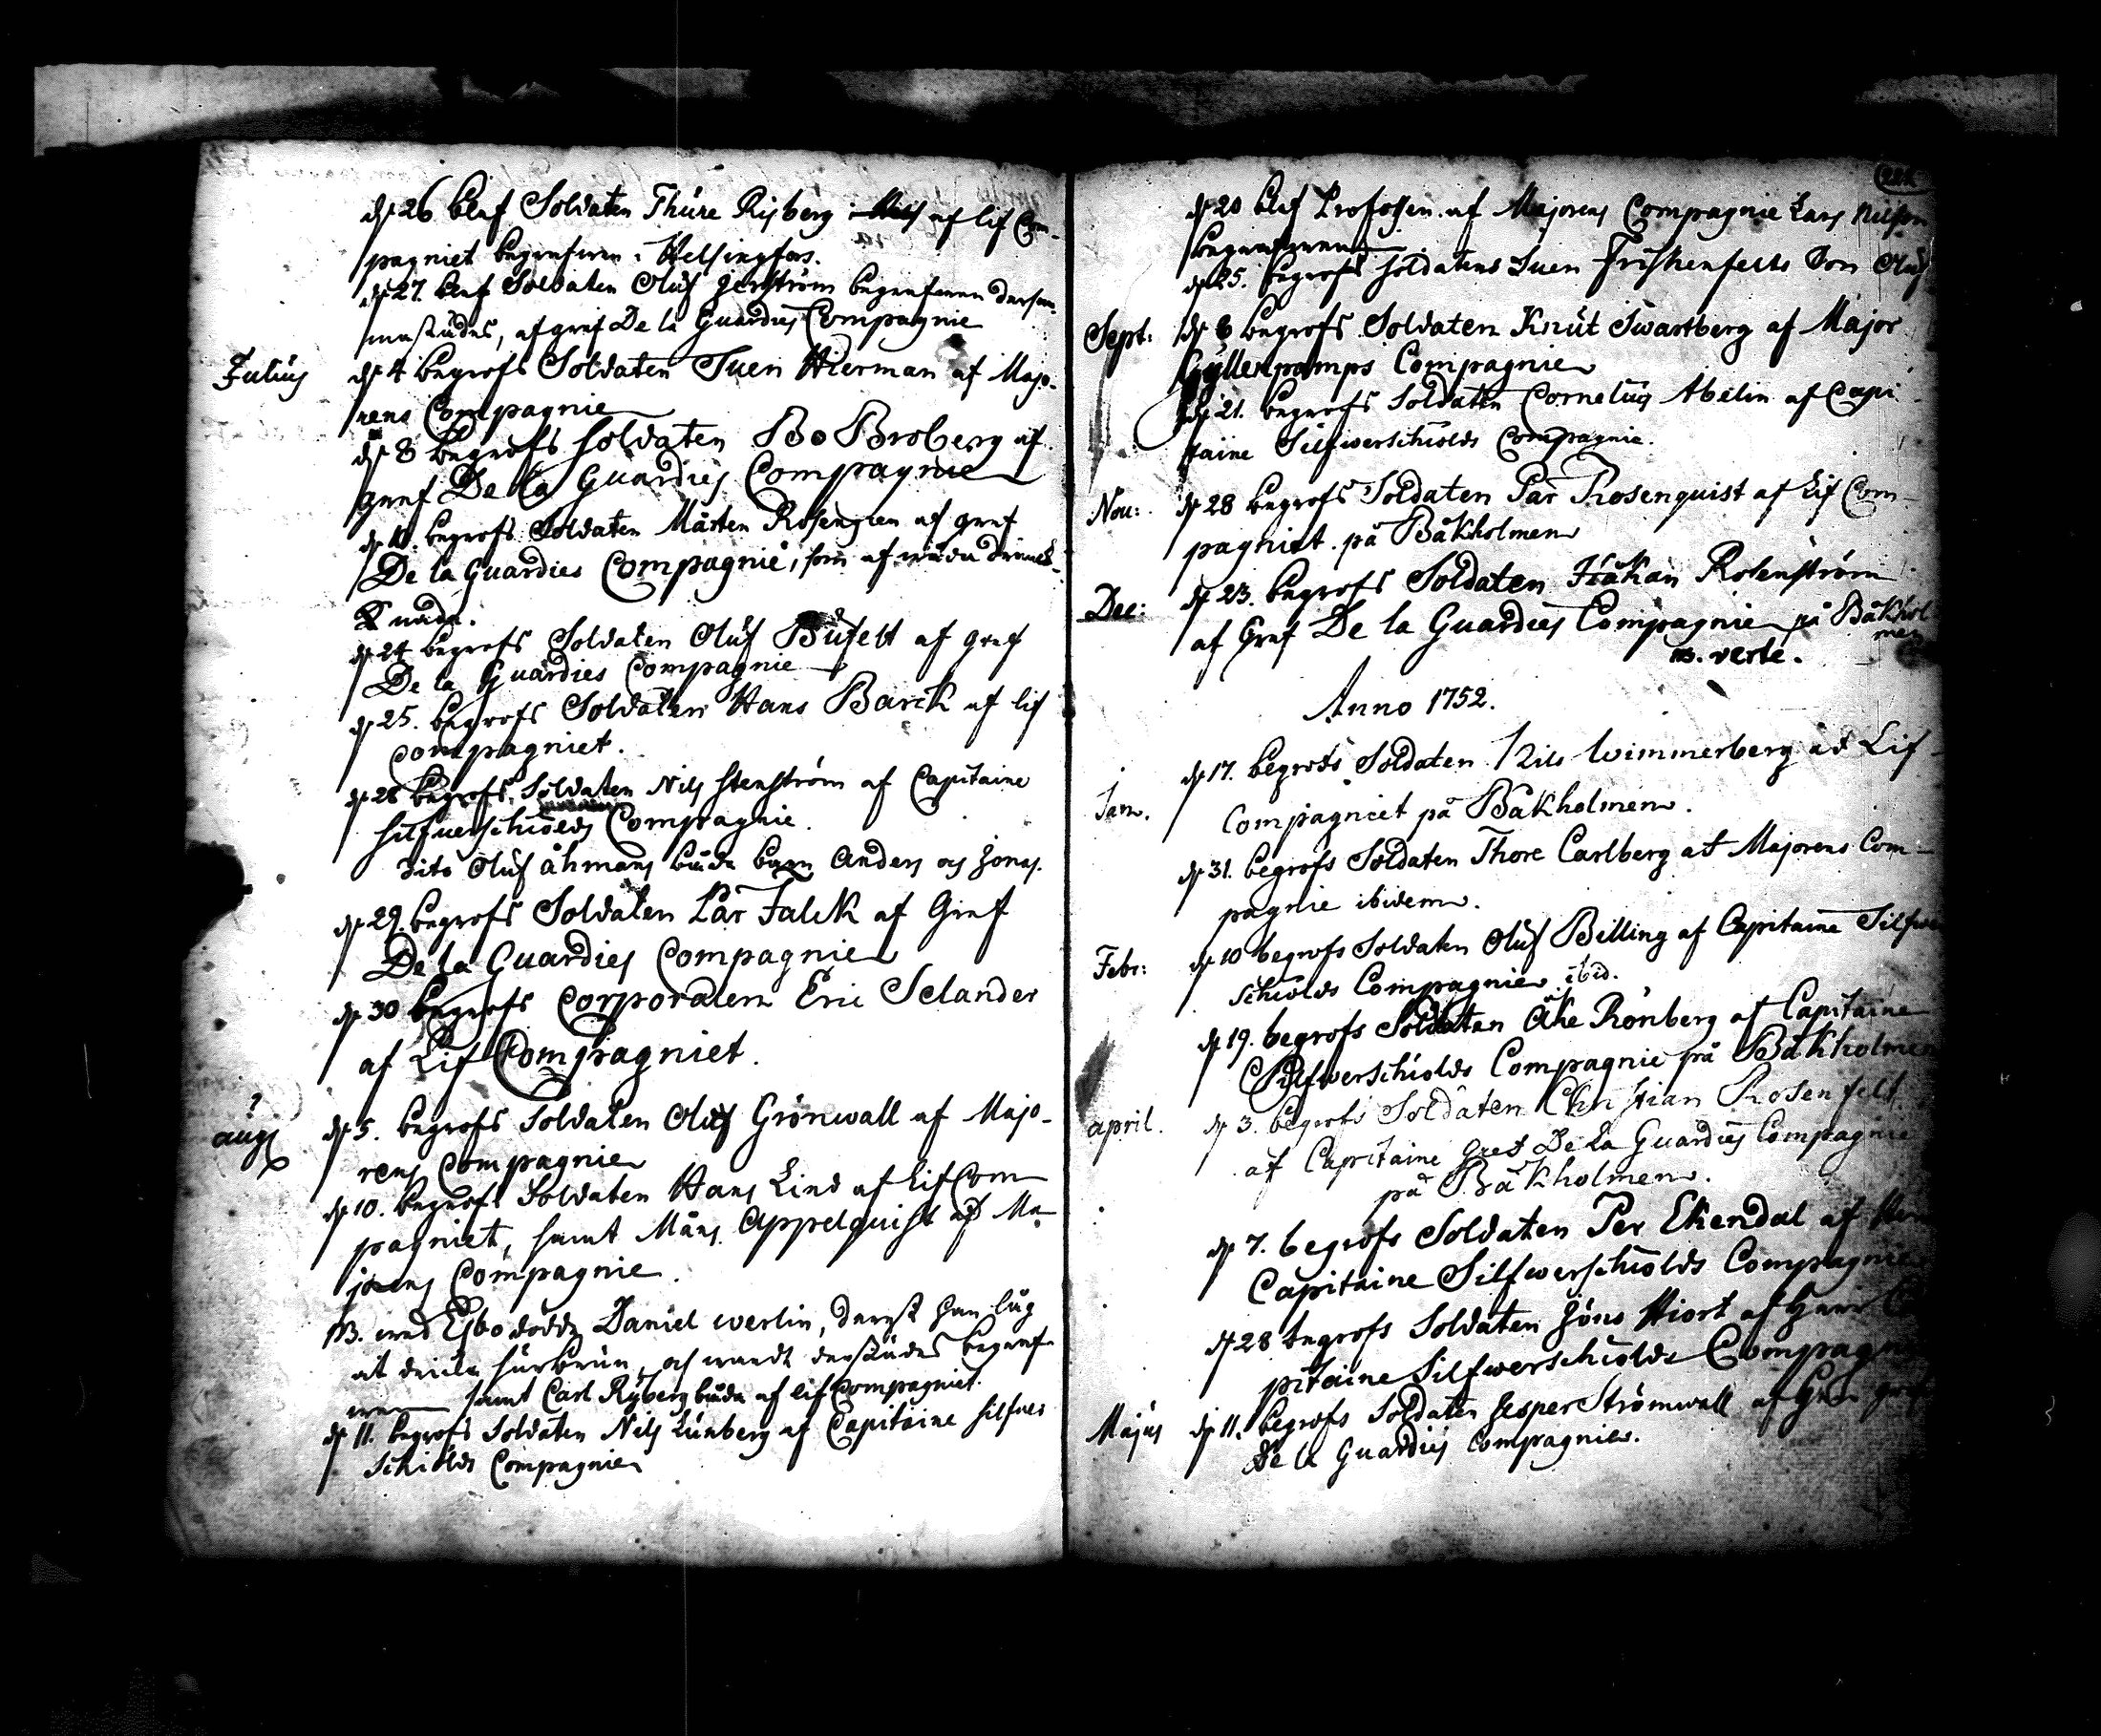 d. 26 blef Soldaten Thure Rijberg af lif Com-
pagniet begrafwen i Helsingfors.
d. 27. blef Soldaten Oluf Jerström begrafwen dersam-
mastädes, af graf De la Guardies Compagnie
Julius d. 4 begrofs Soldaten Suen Hierman af Majo-
rens Compagnie
d. 8 begrofs Soldaten Bo Broberg af
graf De la Guardies Compagnie
begrofs Soldaten Mårten Rosengren af graf
De la Guardies Compagnie, som af wåda drunck-
nade.
d. 24 begrofs Soldaten Oluf Bufelt af graf
De la Guardies Compagnie
d. 25. begrofs Soldaten Hans Barck af lif
compagniet.
d. 28 begrofs Soldaten Nils Stenström af Capitaine
Silfuerschiolds Compagnie.
dito Oluf åhmans båda barn Anders och Jonas.
d. 29. begrofs Soldaten Pär Falck af Graf
De la Guardies Compagnie
d. 30 begrofs Corporalen Eric Selander
af Lif Compagniet.
aug d. 5. begrofs Soldaten Oluf Grönwall af Majo-
rens Compagnie
d. 10. begrofs Soldaten Hans Lind af Lif Com
pagniet, samt Måns Appelquist af Ma-
jorens Compagnie.
NB. wid Esbo dödde Daniel werlin, darest han låg
at dricka surbrun, och wardt derstädes begraf-
wen samt Carl Ryberg båda af lif Compagniet.
d. 11. begrofs Soldaten Nils Lünberg af Capitaine Silfuer
Schiölds Compagnie
d. 20 blef Profossen af Majorens Compagnie Lars Nilsson
begrafwen
d. 25. begrofs Soldatens Suen Friskenfelts Son Oluf
Sept: d. 6 begrofs Soldaten Knut Swartberg af Major
Gyllenpamps Compagnie
d. 21. begrofs Soldaten Cornelius Abelin af Capi-
taine Silfwerschiolds Compagnie.
Nou: d. 28 begrofs Soldaten Pär Rosenquist af Lif Com-
pagniet på Båkholmen
Dec: d. 23. begrofs Soldaten Håkan Rosenström
af Graf De la Guardies Compagnie på Båkhol
men
NB. verte.
Anno 1752.
Jan. d. 17. begrofs Soldaten Nils Wimmerberg af Lif-
Compagniet på Båkholmen.
d. 31. begrofs Soldaten Thore Carlberg af Majorens Com-
pagnie ibidem.
Febr: d. 10 begrofs Soldaten Oluf Billing af Capitaine Silfwer
Schiolds Compagnie. ibid.
d. 19. begrofs Soldaten Åke Rönberg af Capitaine
Silfwerschiolds Compagnie på Båkholmen
april. d. 3. begrofs Soldaten Christian Rosenfelt
af Capitaine Gref De La Guardies Compagnie
på Båkholmen.
d. 7. begrofs Soldaten Per Ekendal af Herr
Capitaine Silfwerschiolds Compagnie
d. 28 begrofs Soldaten Jöns Hiort af Herr Ca
pitaine Silfwerschiolds Compagnie
Majus d. 11. begrofs Soldaten Jesper Strömwall af Herr graf
De la Guardies Compagnie.